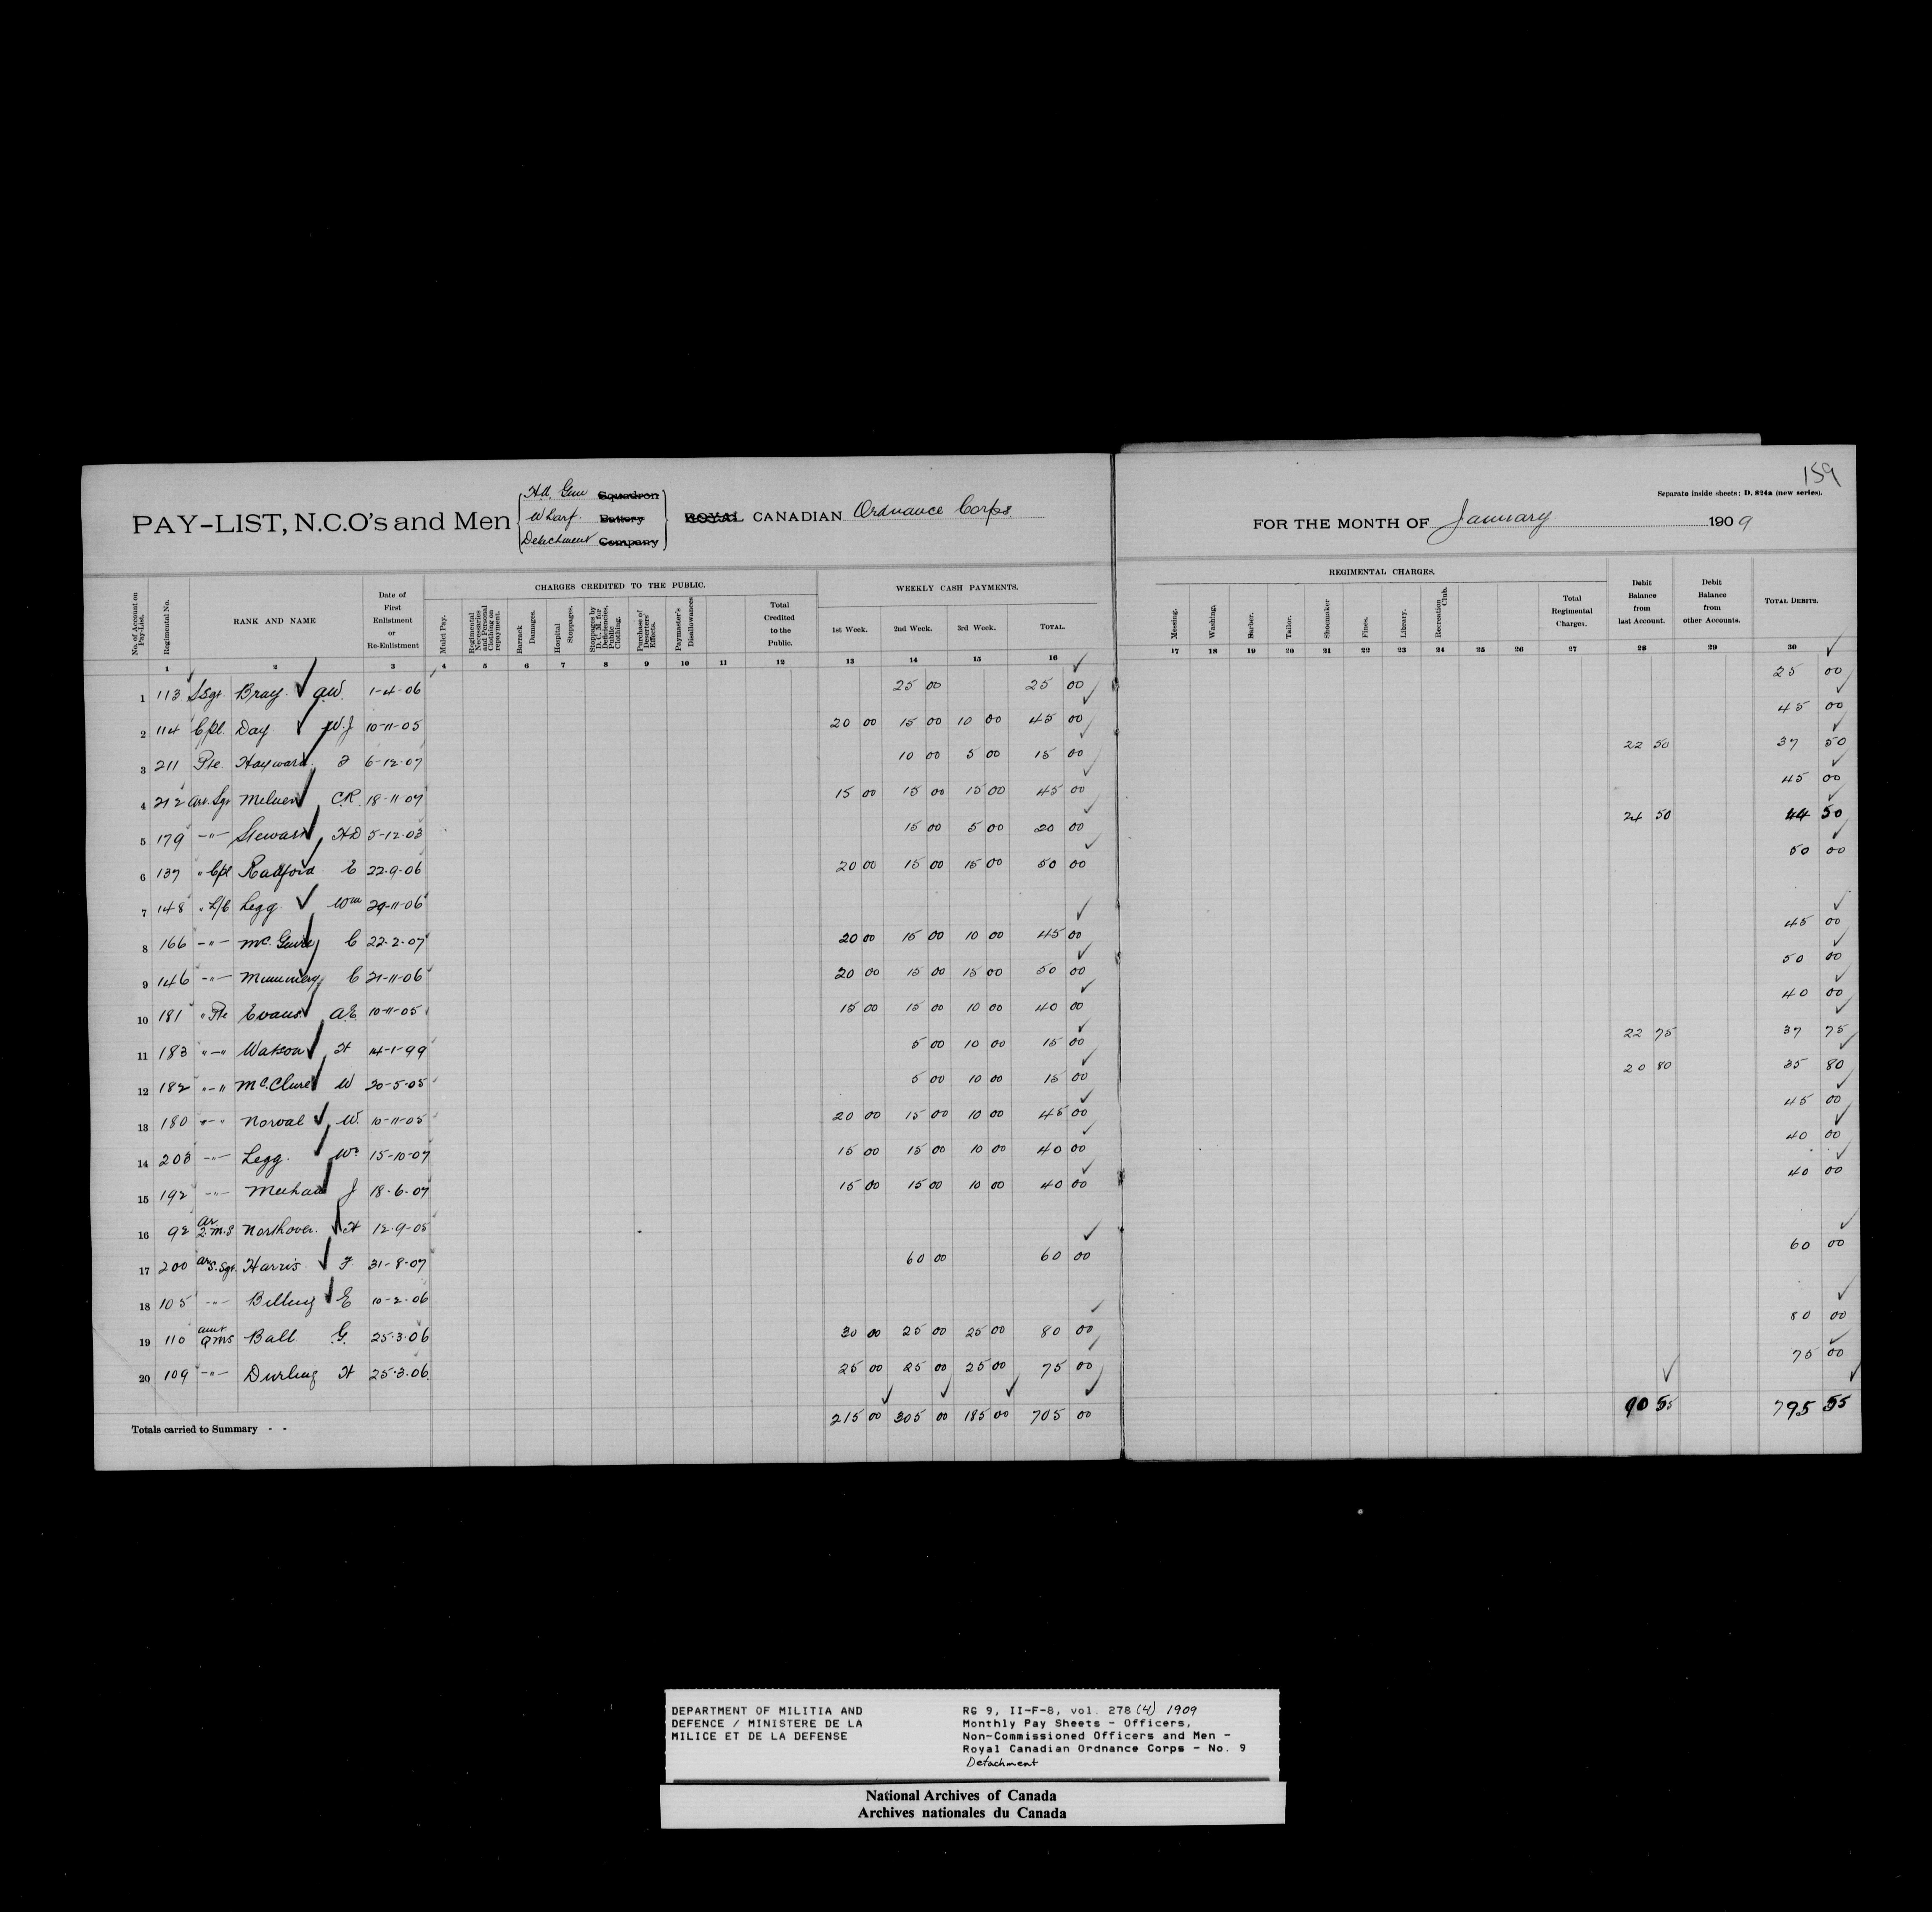 159
Separate inside sheets: D. 824a (new series).
PAY-LIST, N.C.O's and Men
Squadron
Wharf Battery
Detachment Company
ROYAL CANADIAN Ordnance Corps.
FOR THE MONTH OF January 1909
CHARGES CREDITED TO THE PUBLIC.
WEEKLY CASH PAYMENTS.
REGIMENTAL CHARGES.
No. of Account on Pay-List.
Regimental No.
RANK AND NAME
Date of First Enlistment or Re-Enlistment
Mulct Pay.
Regimental Necessaries and Personal Clothing on repayment.
Barrack Damages.
Hospital Stoppages.
Stoppages by D. C. M. for Deficiencies, Public Clothing.
Purchase of Deserters' Effects.
Paymaster's Disallowances
Total Credited to the Public.
1st Week.
2nd Week.
3rd Week.
TOTAL.
Messing.
Washing.
Barber.
Tailor.
Shoemaker
Fines.
Library.
Recreation Club.
Total Regimental Charges.
Debit Balance from last Account.
Debit Balance from other Accounts.
TOTAL DEBITS.
1 2 3 4 5 6 7 8 9 10 11 12 13 14 15 16 17 18 19 20 21 22 23 24 25 26 27 28 29 30
1 113 SSgt. Bray. A.W. 1-4-06 25 00 25 00 25 00
2 114 Cpl. Day W.J 10-11-05 20 00 15 00 10 00 45 00 45 00
3 211 Pte. Hayward 6-12-07 10 00 5 00 15 00 22 50 37 50
4 212 Ar. Sgt C.R. 18-11-07 15 00 15 00 15 00 45 00 45 00
5 179 -"- Steward H.D 5-12-03 15 00 5 00 20 00 24 50 44 50
6 137 " Cpl Radford C 22-9-06 20 00 15 00 15 00 50 00 50 00
7 148 " L/C Legg Wm 29-11-06
8 166 -"- C 22-2-07 20 00 15 00 10 00 45 00 45 00
9 146 -"- Mummery C 21-11-06 20 00 15 00 15 00 50 00 50 00
10 181 " Pte Evans A.E. 10-11-05 15 00 15 00 10 00 40 00 40 00
11 183 "-"- Watson H 14-1-99 5 00 10 00 15 00 22 75 37 75
12 182 "-" McClure W 20-5-05 5 00 10 00 15 00 20 80 35 80
13 180 "-" Norval W. 10-11-05 20 00 15 00 10 00 45 00 45 00
14 203 -"- Legg. Wm 15-10-07 15 00 15 00 10 00 40 00 40 00
15 192 -"- Meehan J 18-6-07 15 00 15 00 10 00 40 00 40 00
16 92 Ar Q.M.S Northover. H 12-9-05
17 200 Ar S. Sgt. Harris F. 31-8-07 60 00 60 00 60 00
18 105 -"- Billing E 10-2-06
19 110 QMS Ball G. 25-3-06 30 00 25 00 25 00 80 00 80 00
20 109 -"- Durling H 25-3-06. 25 00 25 00 25 00 75 00 75 00
Totals carried to Summary - - 215 00 305 00 185 00 705 00 90 55 795 55
DEPARTMENT OF MILITIA AND
DEFENCE / MINISTERE DE LA
MILICE ET DE LA DEFENSE
RG 9, II-F-8, vol. 278 (4) 1909
Monthly Pay Sheets - Officers,
Non-Commissioned Officers and Men -
Royal Canadian Ordnance Corps - No. 9
Detachment
National Archives of Canada
Archives nationales du Canada